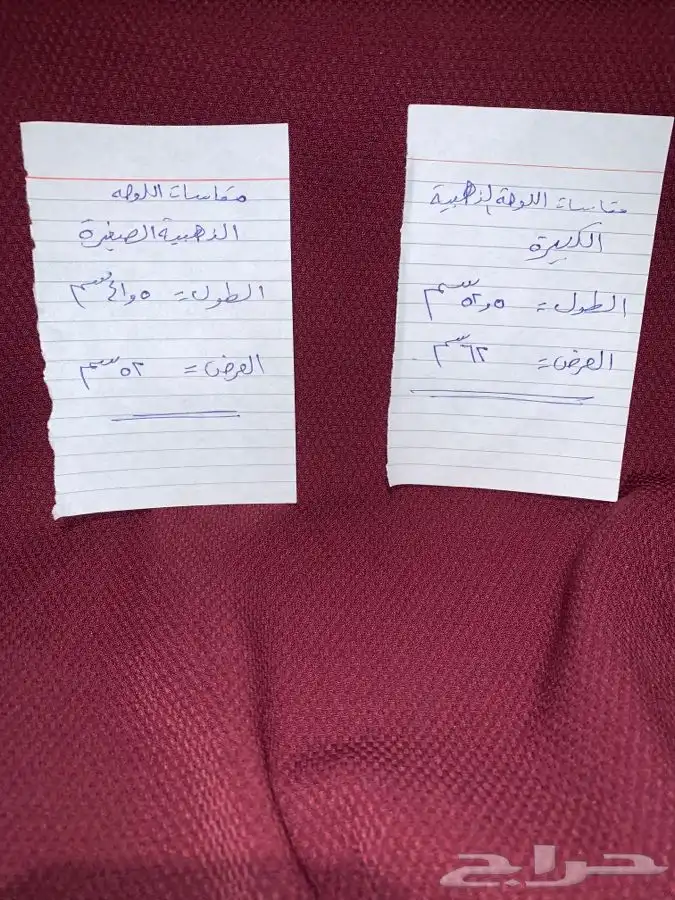 مقاسات اللوحة الذهبية
الكبيرة
الطول = ٥و٥٢ سم
العرض = ٦٢ سم
مقاسات اللوحه
الذهبية الصغيرة
الطول = ٥و٤١ سم
العرض = ٥٢ سم
حراج